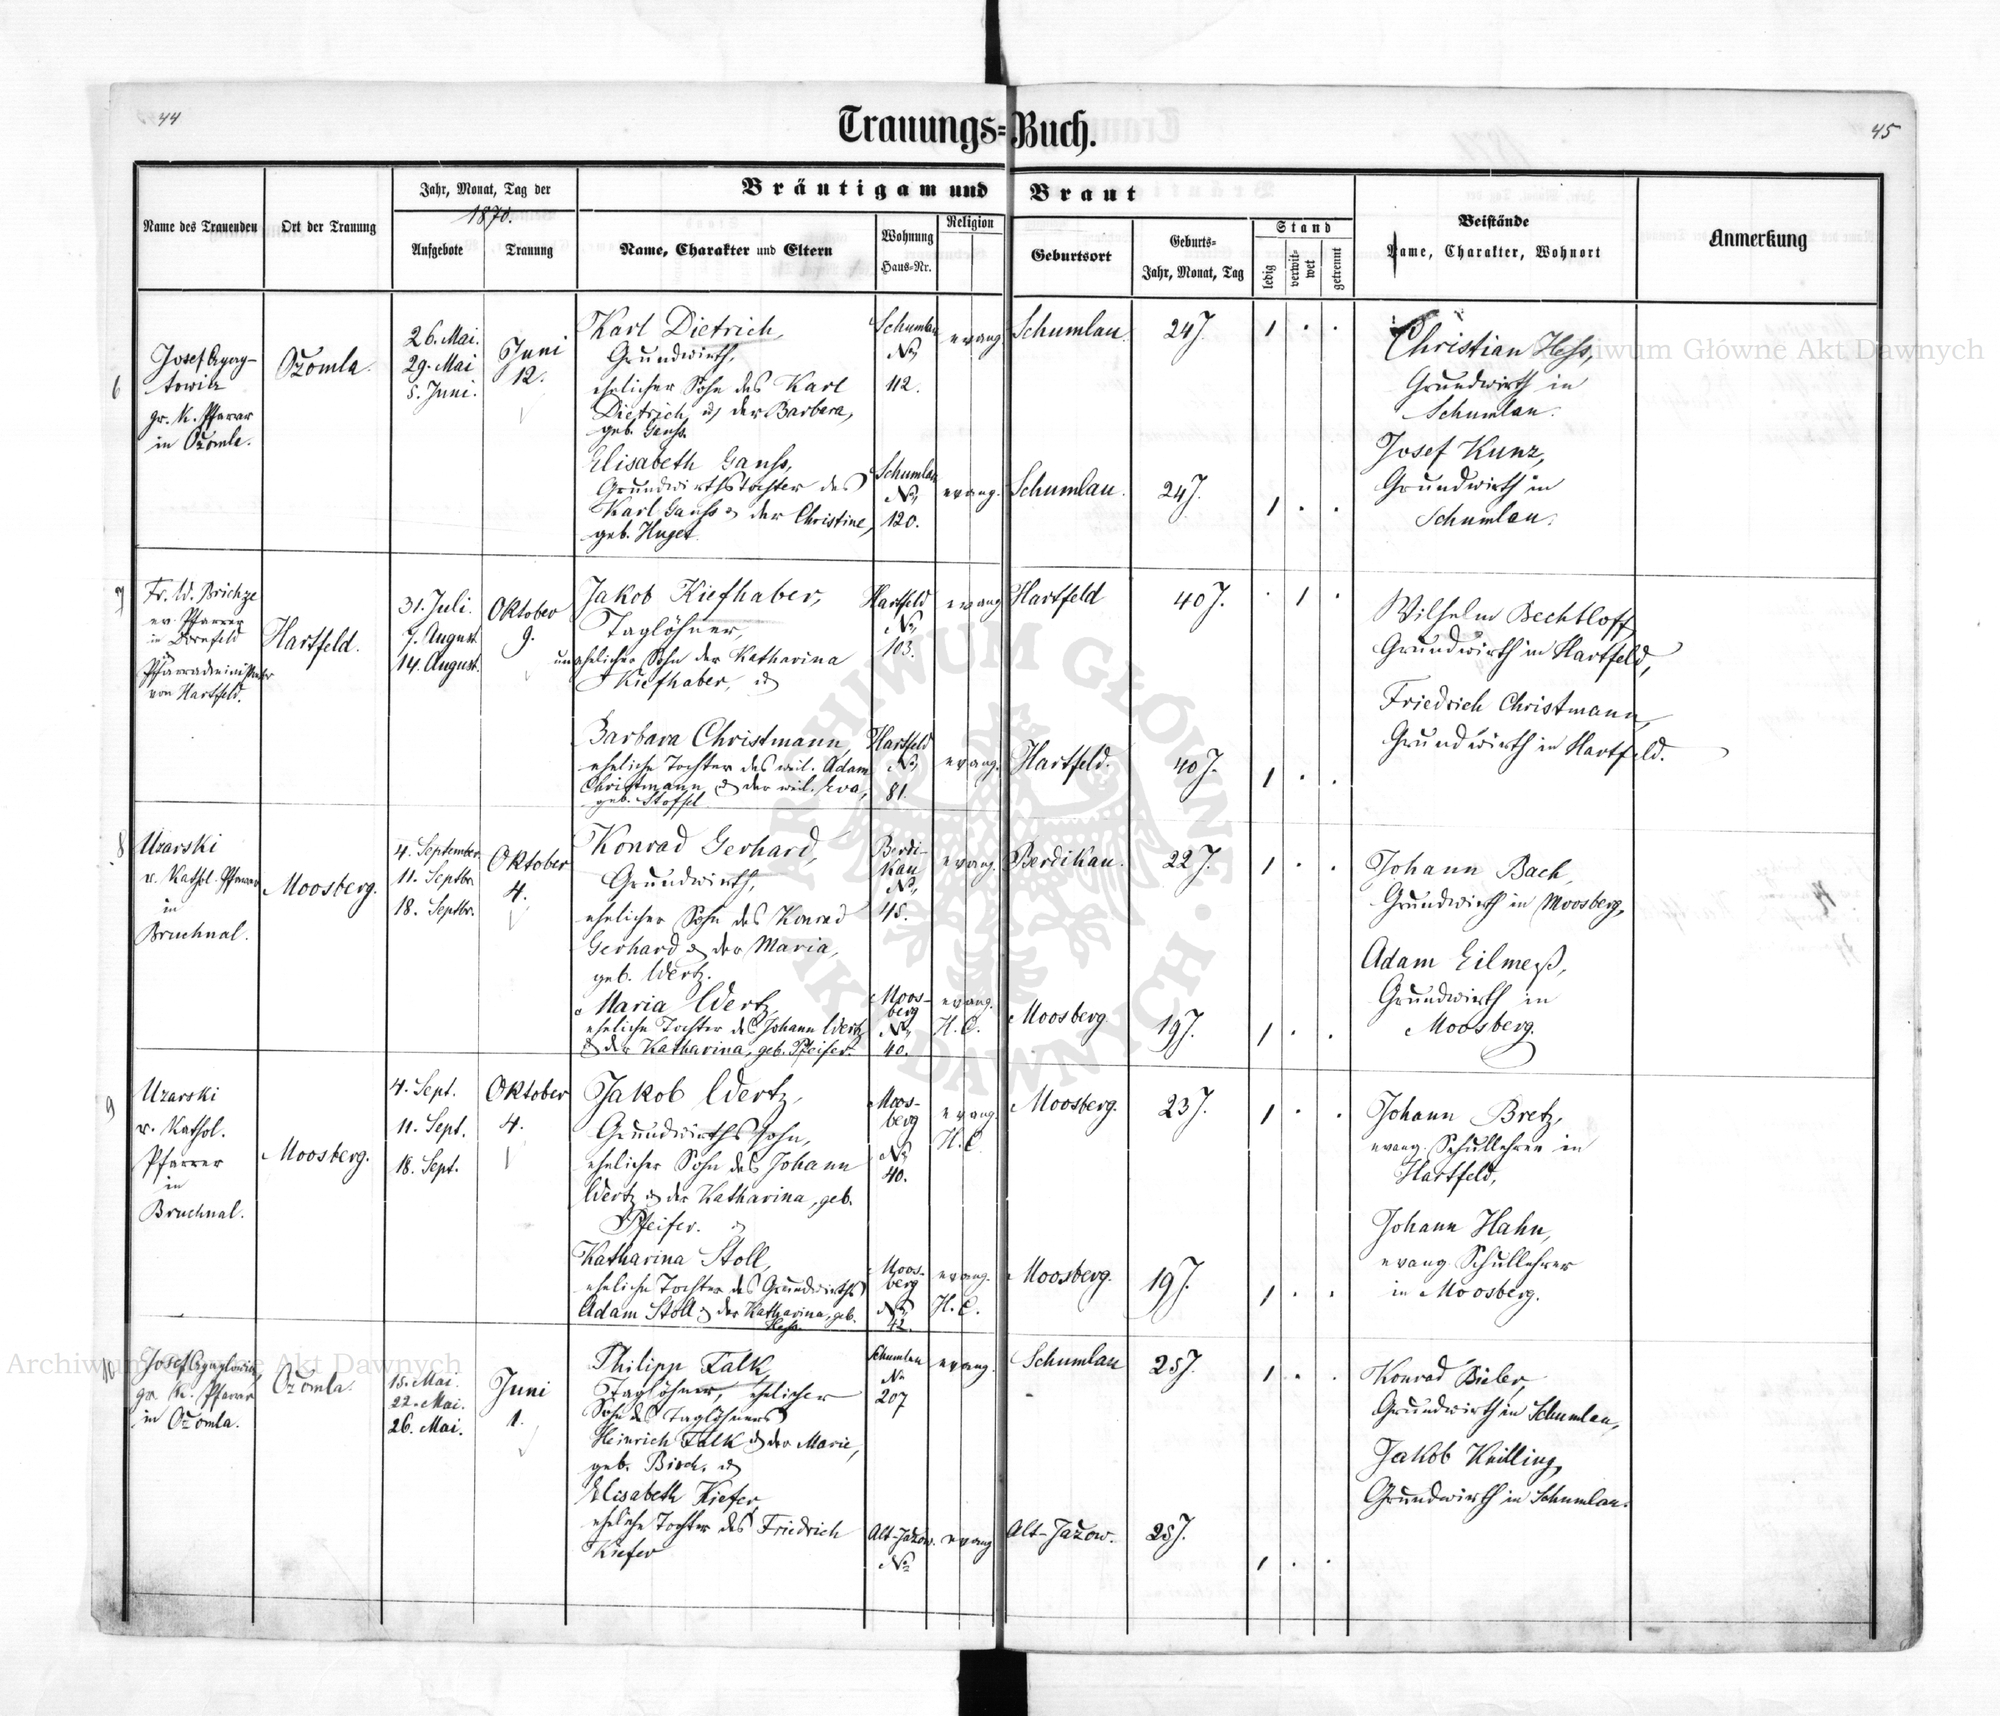 44
45
Trauungs=Buch.
Name des Trauenden
Ort der Trauung
Jahr, Monat, Tag der
1870.
Aufgebote
Trauung
Bräutigam und Braut
Name, Charakter und Eltern
Wohnung
Haus-Nr.
Religion
Geburtsort
Geburts-
Jahr, Monat, Tag
Stand
ledig
verwit-
wet
getrennt
Beistände
Name, Charakter, Wohnort
Anmerkung
6
gr. K. Pfarrer
in Ożomla.
Ożomla.
26. Mai.
29. Mai
5. Juni.
Juni
12.
Karl Dietrich,
Grundwirth,
ehelicher Sohn des Karl
Dietrich u, der Barbara,
geb. Ganß.
Schumlau
No
112.
evang.
Schumlau.
24 J.
1 . .
Elisabeth Ganß,
Grundwirthstochter des
Karl Ganß & der Christine,
geb. Huget
Schumlau
No
120.
evang.
Schumlau.
24 J.
1 . .
Christian Heß,
Grundwirth in
Schumlau.
Josef Kunz,
Grundwirth in
Schumlau.
7
Fr. W. Brichze
ev. Pfarrer
in Dornfeld
Pfarradministrator
von Hartfeld.
Hartfeld.
31. Juli.
7. August.
14. August.
Oktober
9.
Jakob Kiefhaber,
Taglöhner,
unehelicher Sohn der Katharina
Kiefhaber, &
Hartfeld
No
103.
evang
Hartfeld
40 J.
. 1 .
Barbara Christmann,
eheliche Tochter des weil. Adam
Christmann & der weil. Eva,
geb. Stoffel
Hartfeld
No
81.
evang.
Hartfeld.
40 J.
1 . .
Wilhelm Bechtloff,
Grundwirth in Hartfeld,
Friedrich Christmann,
Grundwirth in Hartfeld.
8
Uzarski
r. Kathol. Pfarrer
in
Bruchnal.
Moosberg.
4. September.
11. Septbr.
18. Septbr.
Oktober
4.
Konrad Gerhard,
Grundwirth,
ehelicher Sohn des Konrad
Gerhard & der Maria,
geb. Wertz.
Berdi-
kau
No
45.
evang.
Berdikau.
22 J.
1 . .
Maria Wertz,
eheliche Tochter des Johann Wertz
& der Katharina, geb. Pfeifer.
Moos-
berg
No
40.
evang.
H. C.
Moosberg
19 J.
1 . .
Johann Bach,
Grundwirth in Moosberg,
Adam Eilmeß,
Grundwirth in
Moosberg.
9
Uzarski
r. Kathol.
Pfarrer
in
Bruchnal.
Moosberg.
4. Sept.
11. Sept.
18. Sept.
Oktober
4.
Jakob Wertz,
Grundwirthssohn,
ehelicher Sohn des Johann
Wertz & der Katharina, geb.
Pfeifer. &
Moos-
berg
No
40.
evang.
H. C.
Moosberg.
23 J.
1 . .
Katharina Stoll,
eheliche Tochter des Grundwirths
Adam Stoll & der Katharina, geb.
Heß.
Moos-
berg
No
42.
evang.
H. C.
Moosberg.
19 J.
1 . .
Johann Bretz,
evang. Schullehrer in
Hartfeld,
Johann Hahn,
evang. Schullehrer
in Moosberg.
10
gr. K. Pfarrer
in Ożomla.
Ożomla.
15. Mai.
22. Mai.
26. Mai.
Juni
1.
Philipp Falk,
Taglöhner, ehelicher
Sohn des Taglöhners
Heinrich Falk & der Marie,
geb. Birch. &
Schumlau
No
207
evang.
Schumlau
25 J.
1 . .
Elisabeth Kiefer,
eheliche Tochter des Friedrich
Kiefer
Alt-Jażow.
No
evang
Alt-Jażow.
25 J.
1 . .
Konrad Bieler,
Grundwirth in Schumlau,
Jakob Knilling,
Grundwirth in Schumlau.
Archiwum Główne Akt Dawnych
Archiwum Główne Akt Dawnych
ARCHIWUM GŁÓWNE AKT DAWNYCH